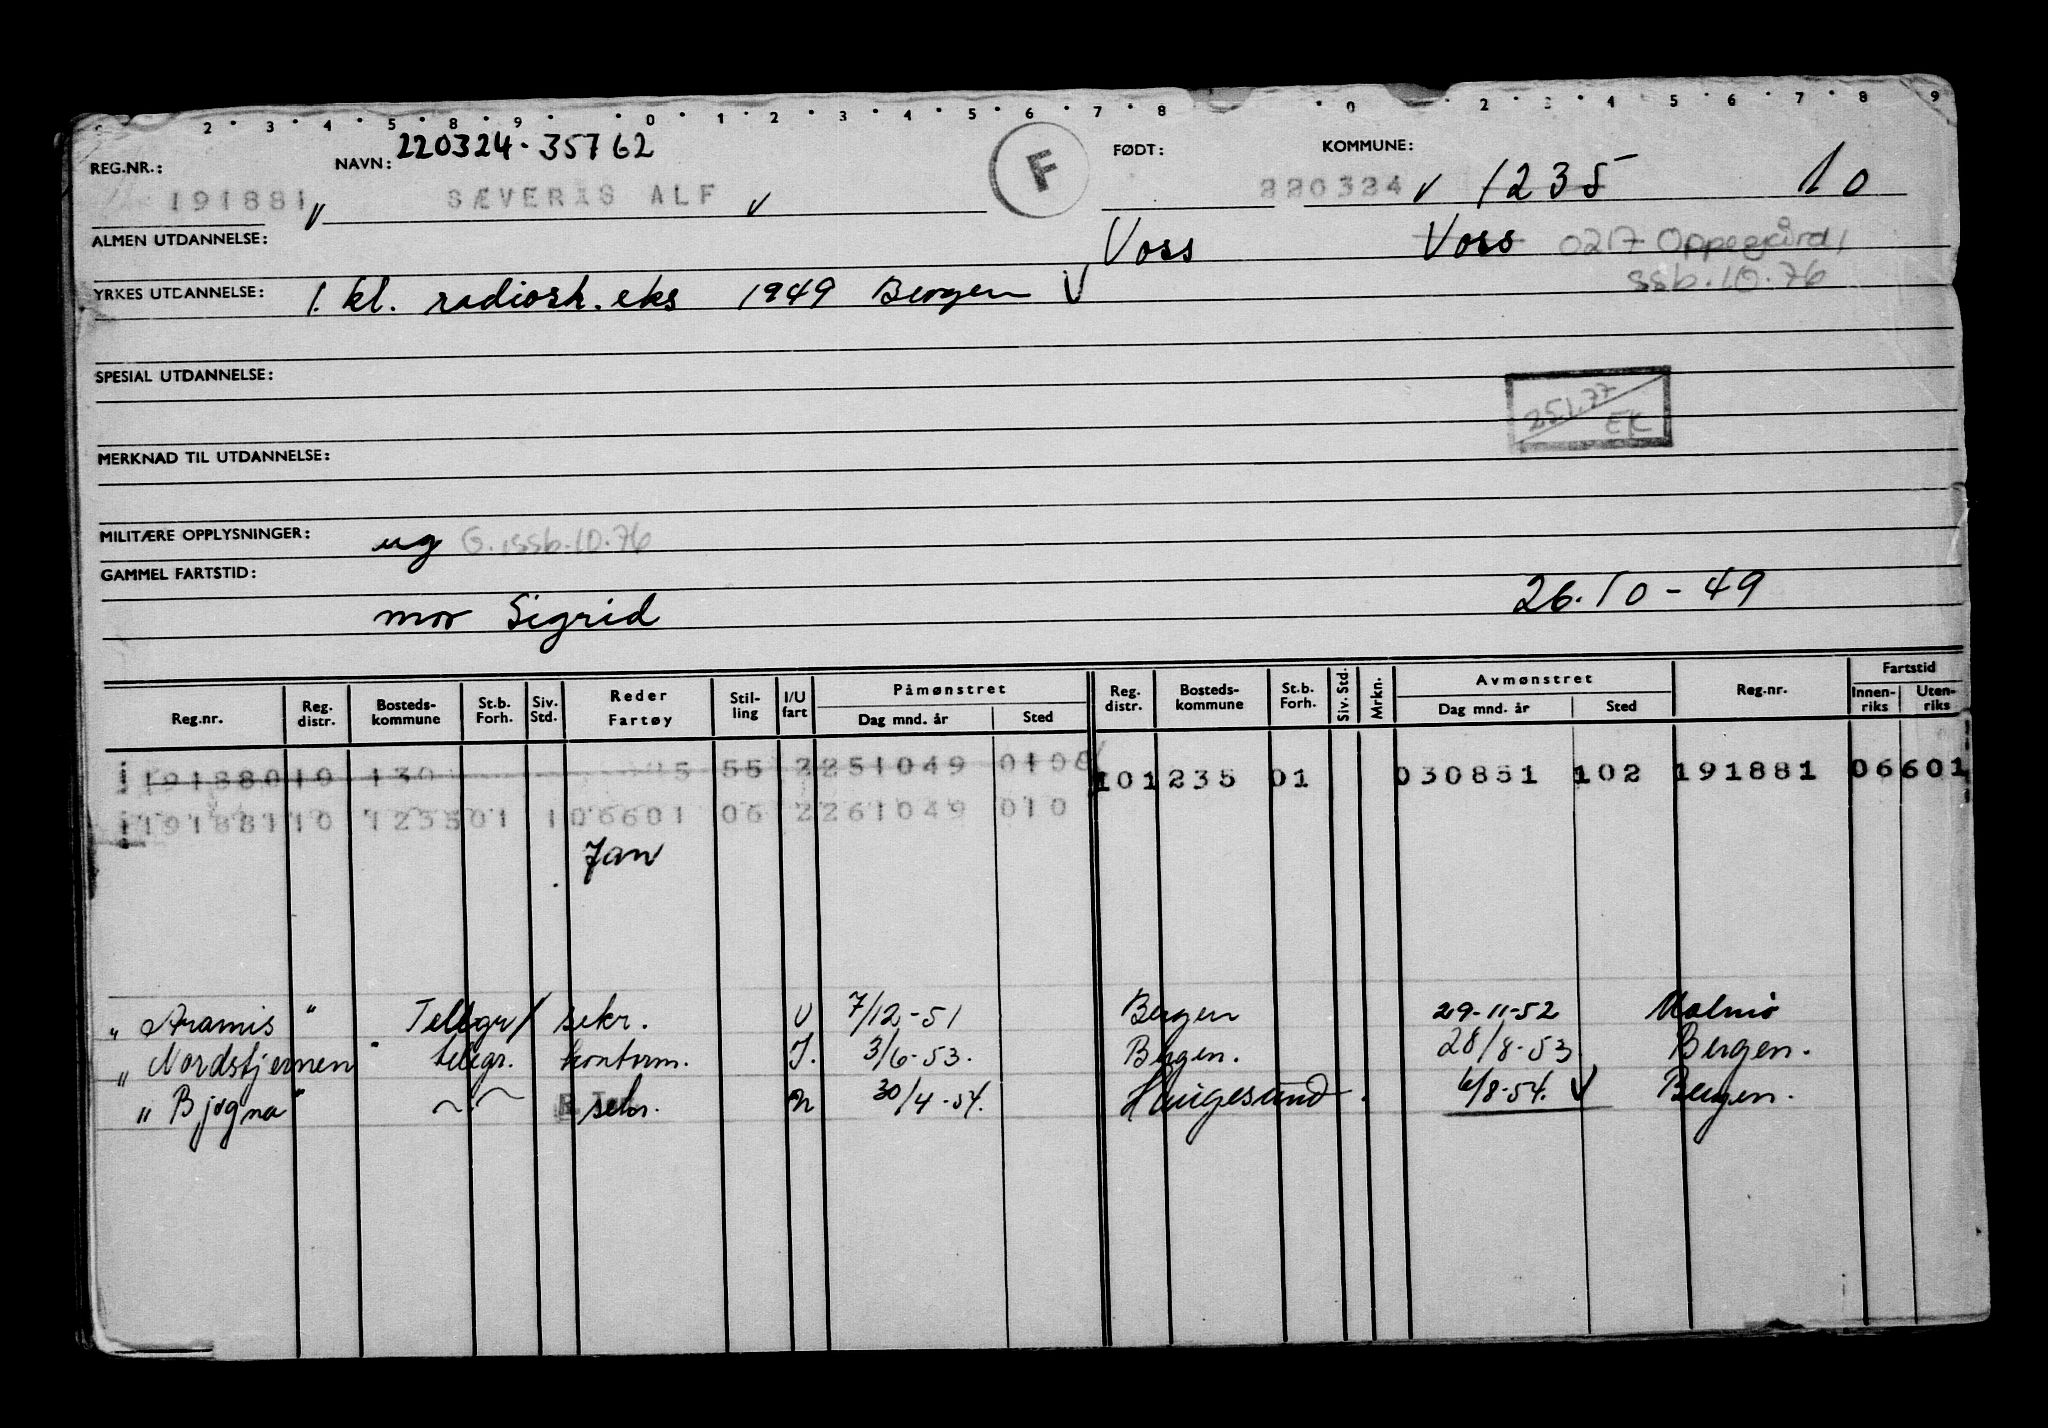 2 3 4 5 8 9 0 1 2 3 4 5 6 7 8 0 2 3 4 5 6 7 8 9
220324-35762
REG.NR.: NAVN: F FØDT: KOMMUNE:
191881 SÆVERAS ALF V 220324 V 1235 10
ALMEN UTDANNELSE: Voss Voss 0217 Oppegård,
ssb.10.76
YRKES UTDANNELSE: 1. kl. radiosk. eks 1949 Bergen V
SPESIAL UTDANNELSE:
25.1.77
EK
MERKNAD TIL UTDANNELSE:
MILITÆRE OPPLYSNINGER: ug G. ssb.10.76
GAMMEL FARTSTID:
mor Sigrid 26.10-49
Reg.nr. Reg. distr. Bosteds-kommune St.b. Forh. Siv. Std. Reder Fartøy Stil-ling I/U fart Påmønstret Dag mnd. år Sted Reg. distr. Bosteds-kommune St.b. Forh. Siv. Std. Mrkn. Avmønstret Dag mnd. år Sted Reg.nr. Fartstid Innen-riks Uten-riks
191880 10 130 55 2 251049 010 10 1235 01 030851 102 191881 06601
191881 10 1235 01 1 06601 06 2 261049 010
Jan
" Aramis " Telegr/ sekr. U 7/12-51 Bergen 29-11-52 Malmö
" Nordstjernen " telegr. kontorm. I. 3/6-53. Bergen. 28/8-53 Bergen.
" Bjøgna " sekr. 30/4-54. Haugesund. 6/8-54. V Bergen.